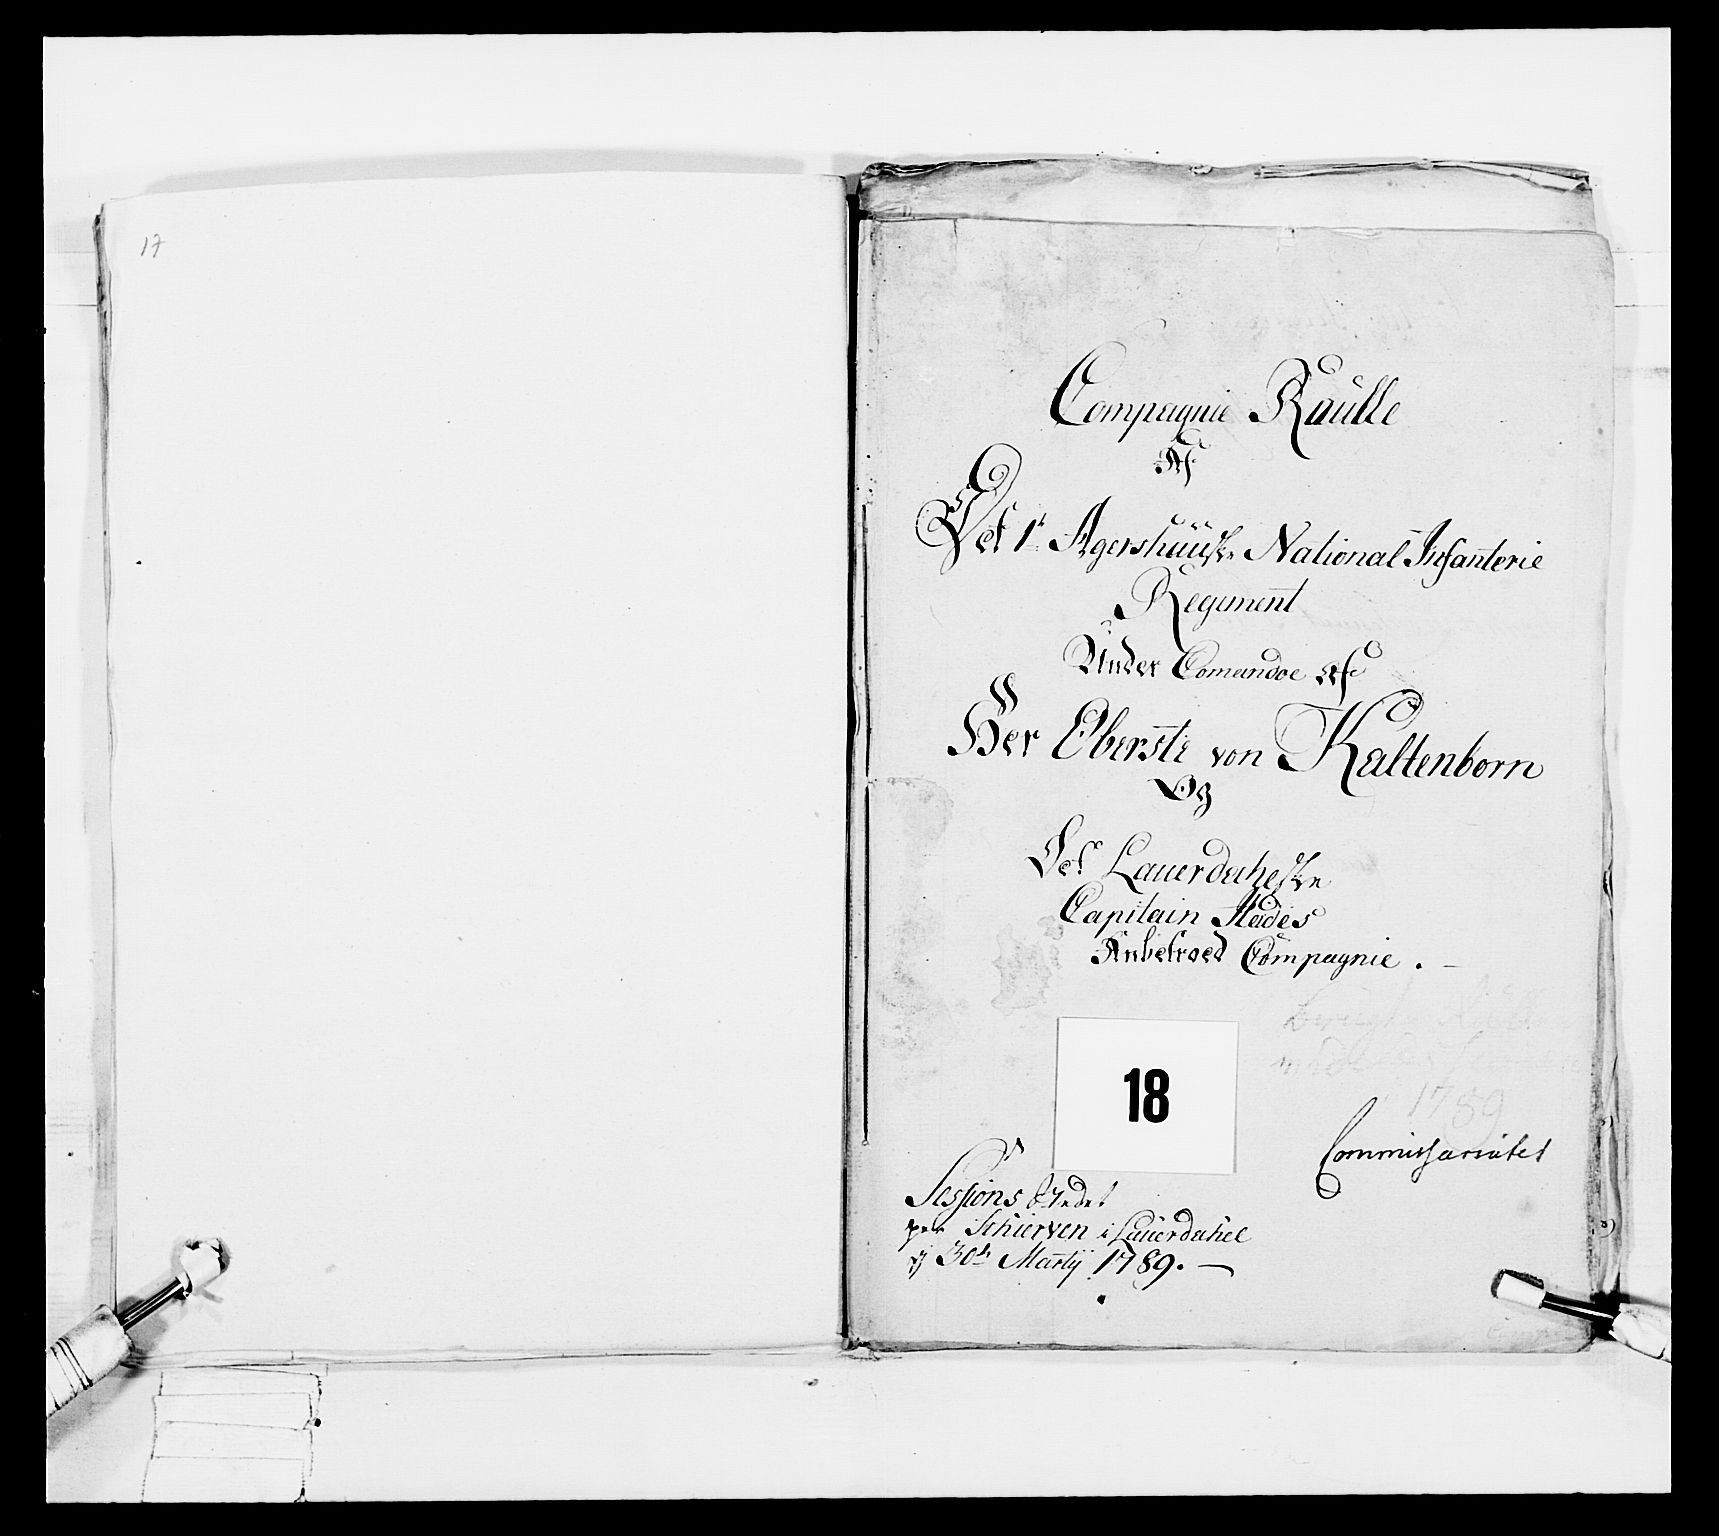 17
Compagnie Rüulle
Af
Det 1te Agershuuske National Infanterie
Regiment
Under Comandoe af
Her Oberste von Kaltenborn
Og
Det Lauerdahelske
Capitain Stades
Anbetroed Compagnie . -
1789
18
Commissariatet
Sessions Stedet
paa Schierven i Lauerdahel
d 30te Martij 1789. -